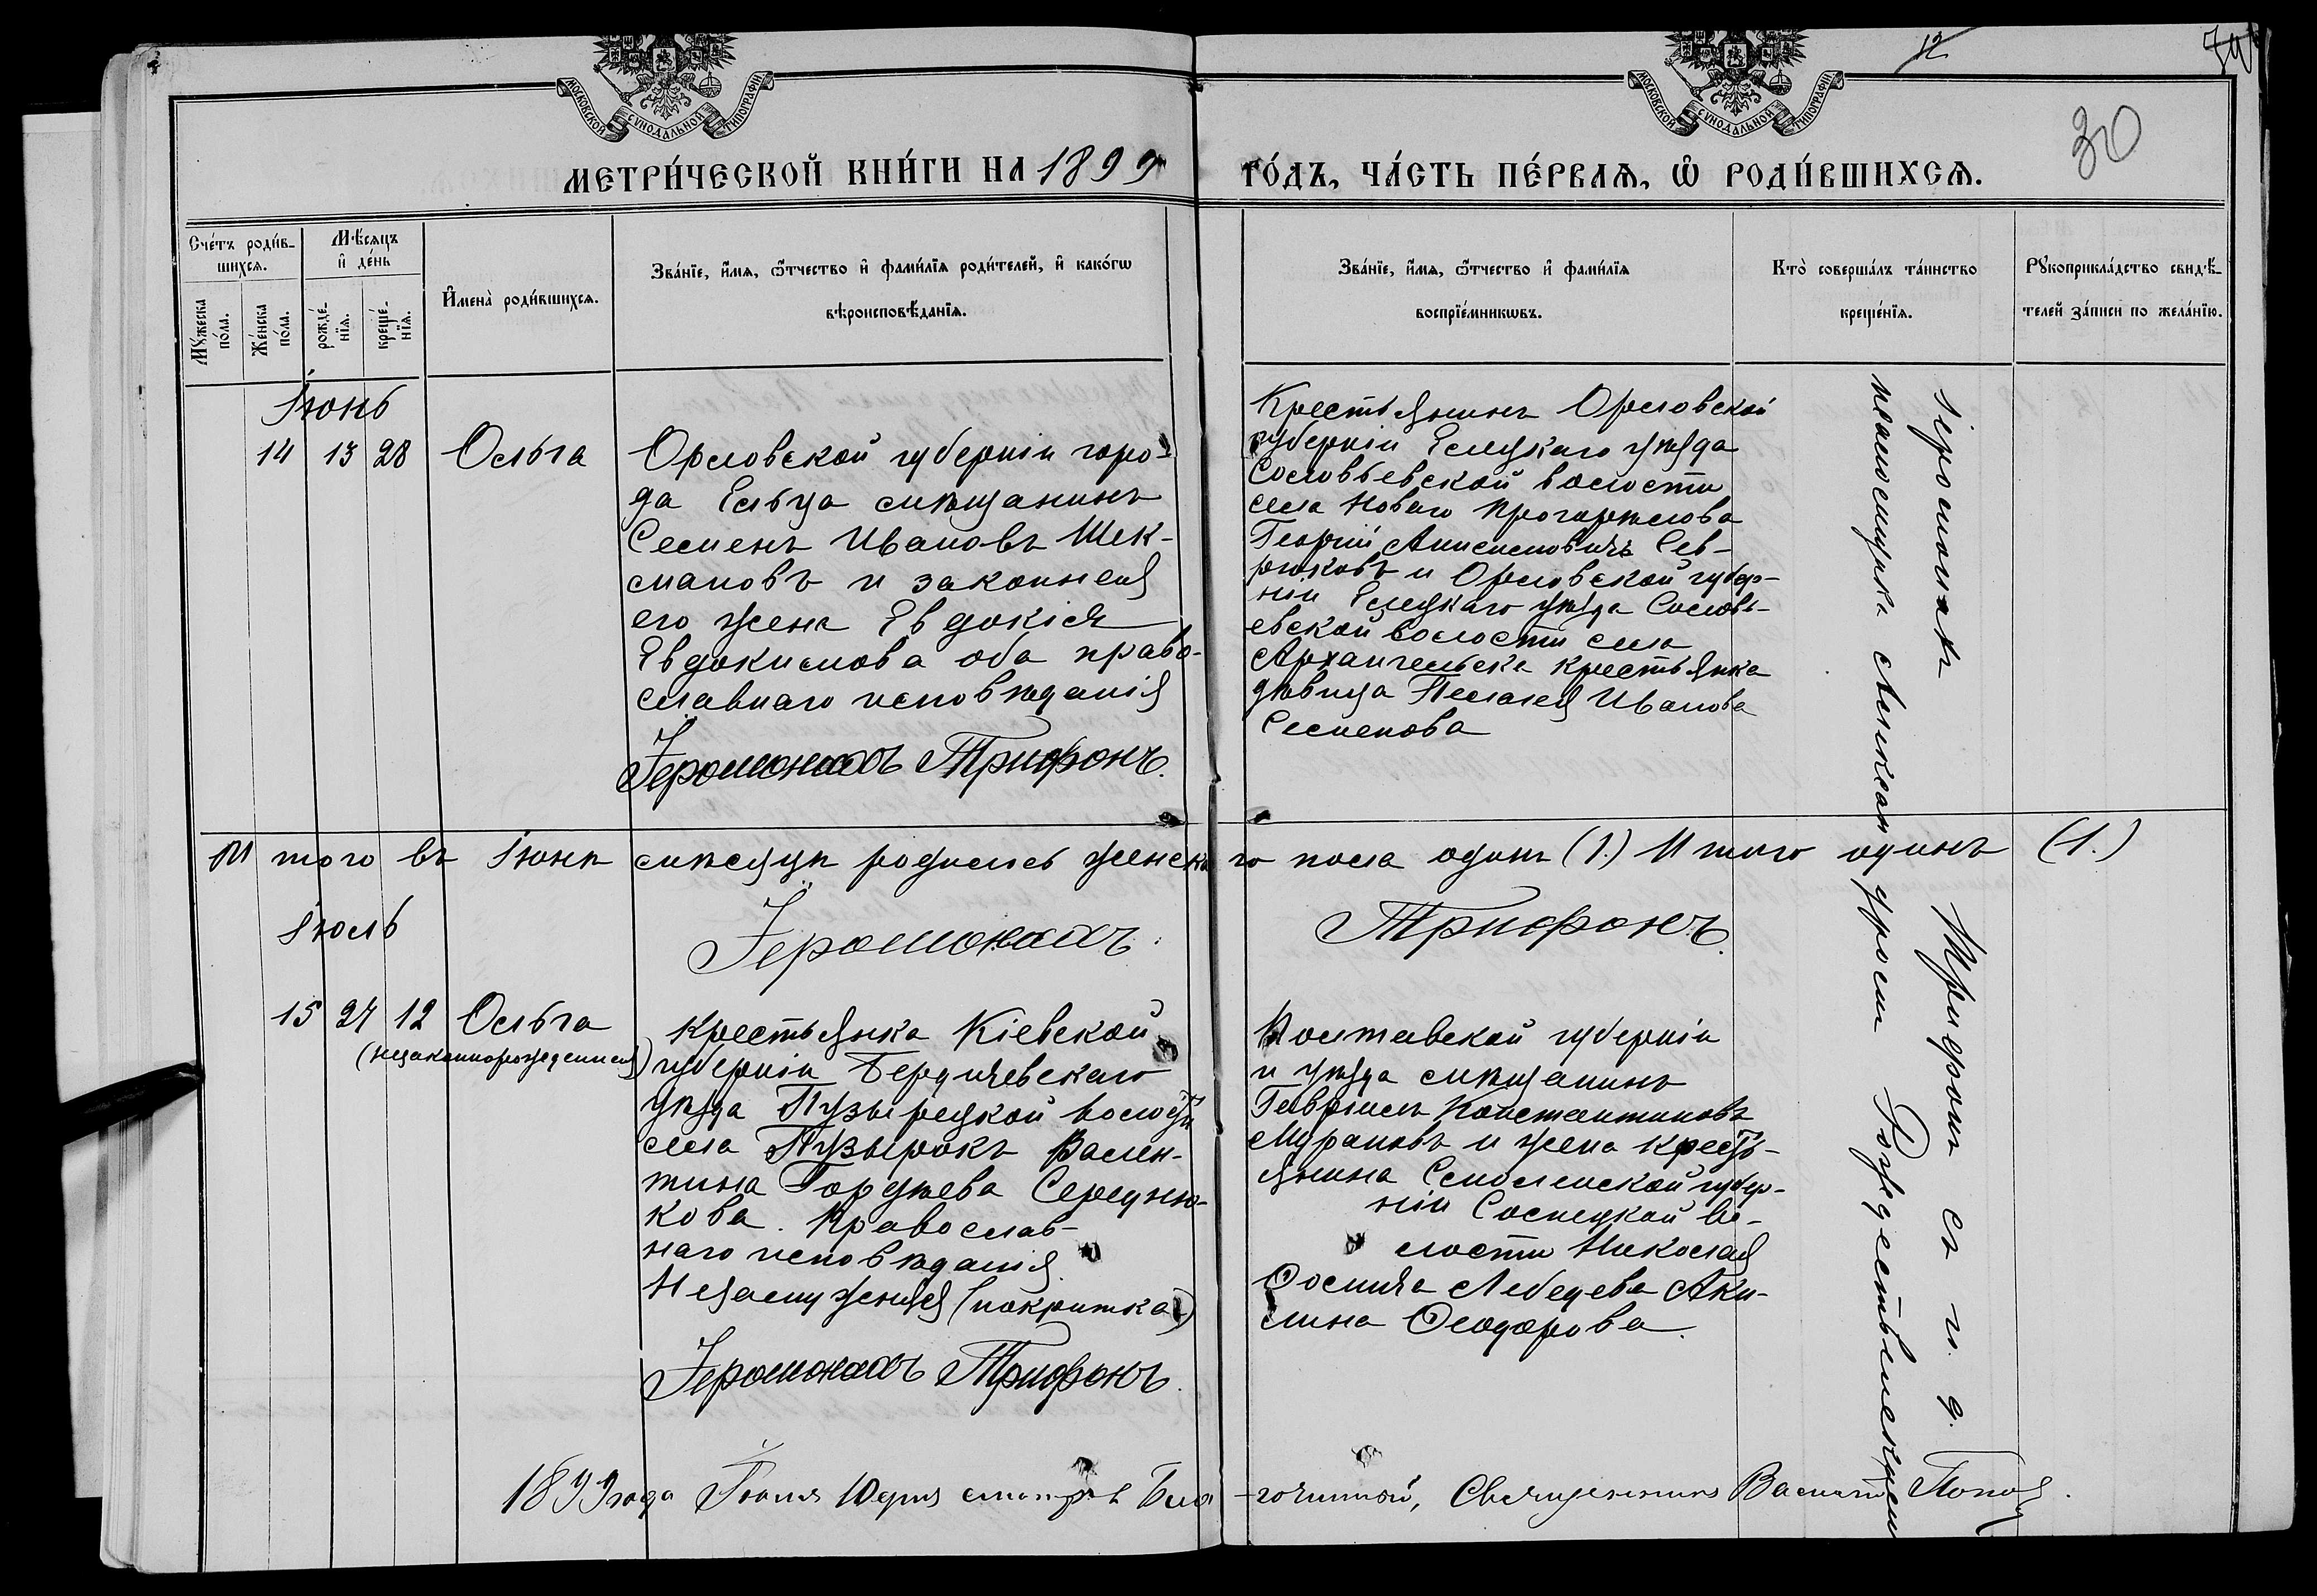 МОСКОВСКОЙ СѴНОДАЛЬНОЙ ТИПОГРАФІИ
МОСКОВСКОЙ СѴНОДАЛЬНОЙ ТИПОГРАФІИ
12
30
МЕТРИ́ЧЕСКОЙ КНИ́ГИ НА 1899 ГО́ДЪ, ЧА́СТЬ ПЕ́РВАѦ, Ѡ҆ РОДИ́ВШИХСѦ.
Сче́тъ роди́в-
шихсѧ.
Мꙋ́жеска
по́ла.
Же́нска
по́ла.
Мѣ́сяцъ
и҆ де́нь
рожде́-
нїѧ.
креще́-
нїѧ.
И҆мена̀ роди́вшихсѧ.
Зва́нїе, и҆́мѧ, ѻ҆́тчество и҆ фами́лїѧ роди́телей, и҆ како́гѡ
вѣроисповѣ́данїѧ.
Зва́нїе, и҆́мѧ, ѻ҆́тчество и҆ фами́лїѧ
воспрїе́мникѡвъ.
Кто̀ соверша́лъ та́инство
креще́нїѧ.
Рꙋкоприкла́дство свидѣ́-
телей за́писи по жела́нїю.
Іюнь
14 13 28 Ольга
Орловской губерніи горо-
да Ельца мѣщанинъ
Семенъ Ивановъ Шек-
мановъ и законная
его жена Евдокія
Евдокимова оба право-
славнаго исповѣданія
Іеромонахъ Трифонъ.
Крестьянинъ Орловской
губерніи Елецкаго уѣзда
Соловьевской волости
села Новаго
Георгій и Орловской губер-
ніи Елецкаго уѣзда Соловь-
евской волости села
Архангельска крестьянка
дѣвица Пелагея Иванова
Семенова
Іеромонахъ Трифонъ съ п. д.
псаломщика Александромъ Рождественскимъ
Итого въ Іюнѣ мѣсяцѣ родилось женскаго пола одинъ (1.) Итого одинъ (1.)
Іеромонахъ Трифонъ.
Іюль
15 24 12 Ольга
(незаконнорожденная)
Крестьянка Кіевской
губерніи Бердичевскаго
уѣзда Пузырецкой волости
села Пузырокъ Вален-
тина Гордѣева Середню-
кова. Православ-
наго исповѣданія.
Незамужняя (покритка)
Іеромонахъ Трифонъ.
Полтавской губерніи
и уѣзда мѣщанинъ
Гавріилъ Константиновъ
Мурановъ и жена кресть-
янина Смоленской губер-
ніи во-
лости Николая
Осипа Лебедева Аки-
лина Ѳеодорова.
1899 года Іюля 10 дня смотрѣлъ Благочинный, Священникъ Василій Поповъ.